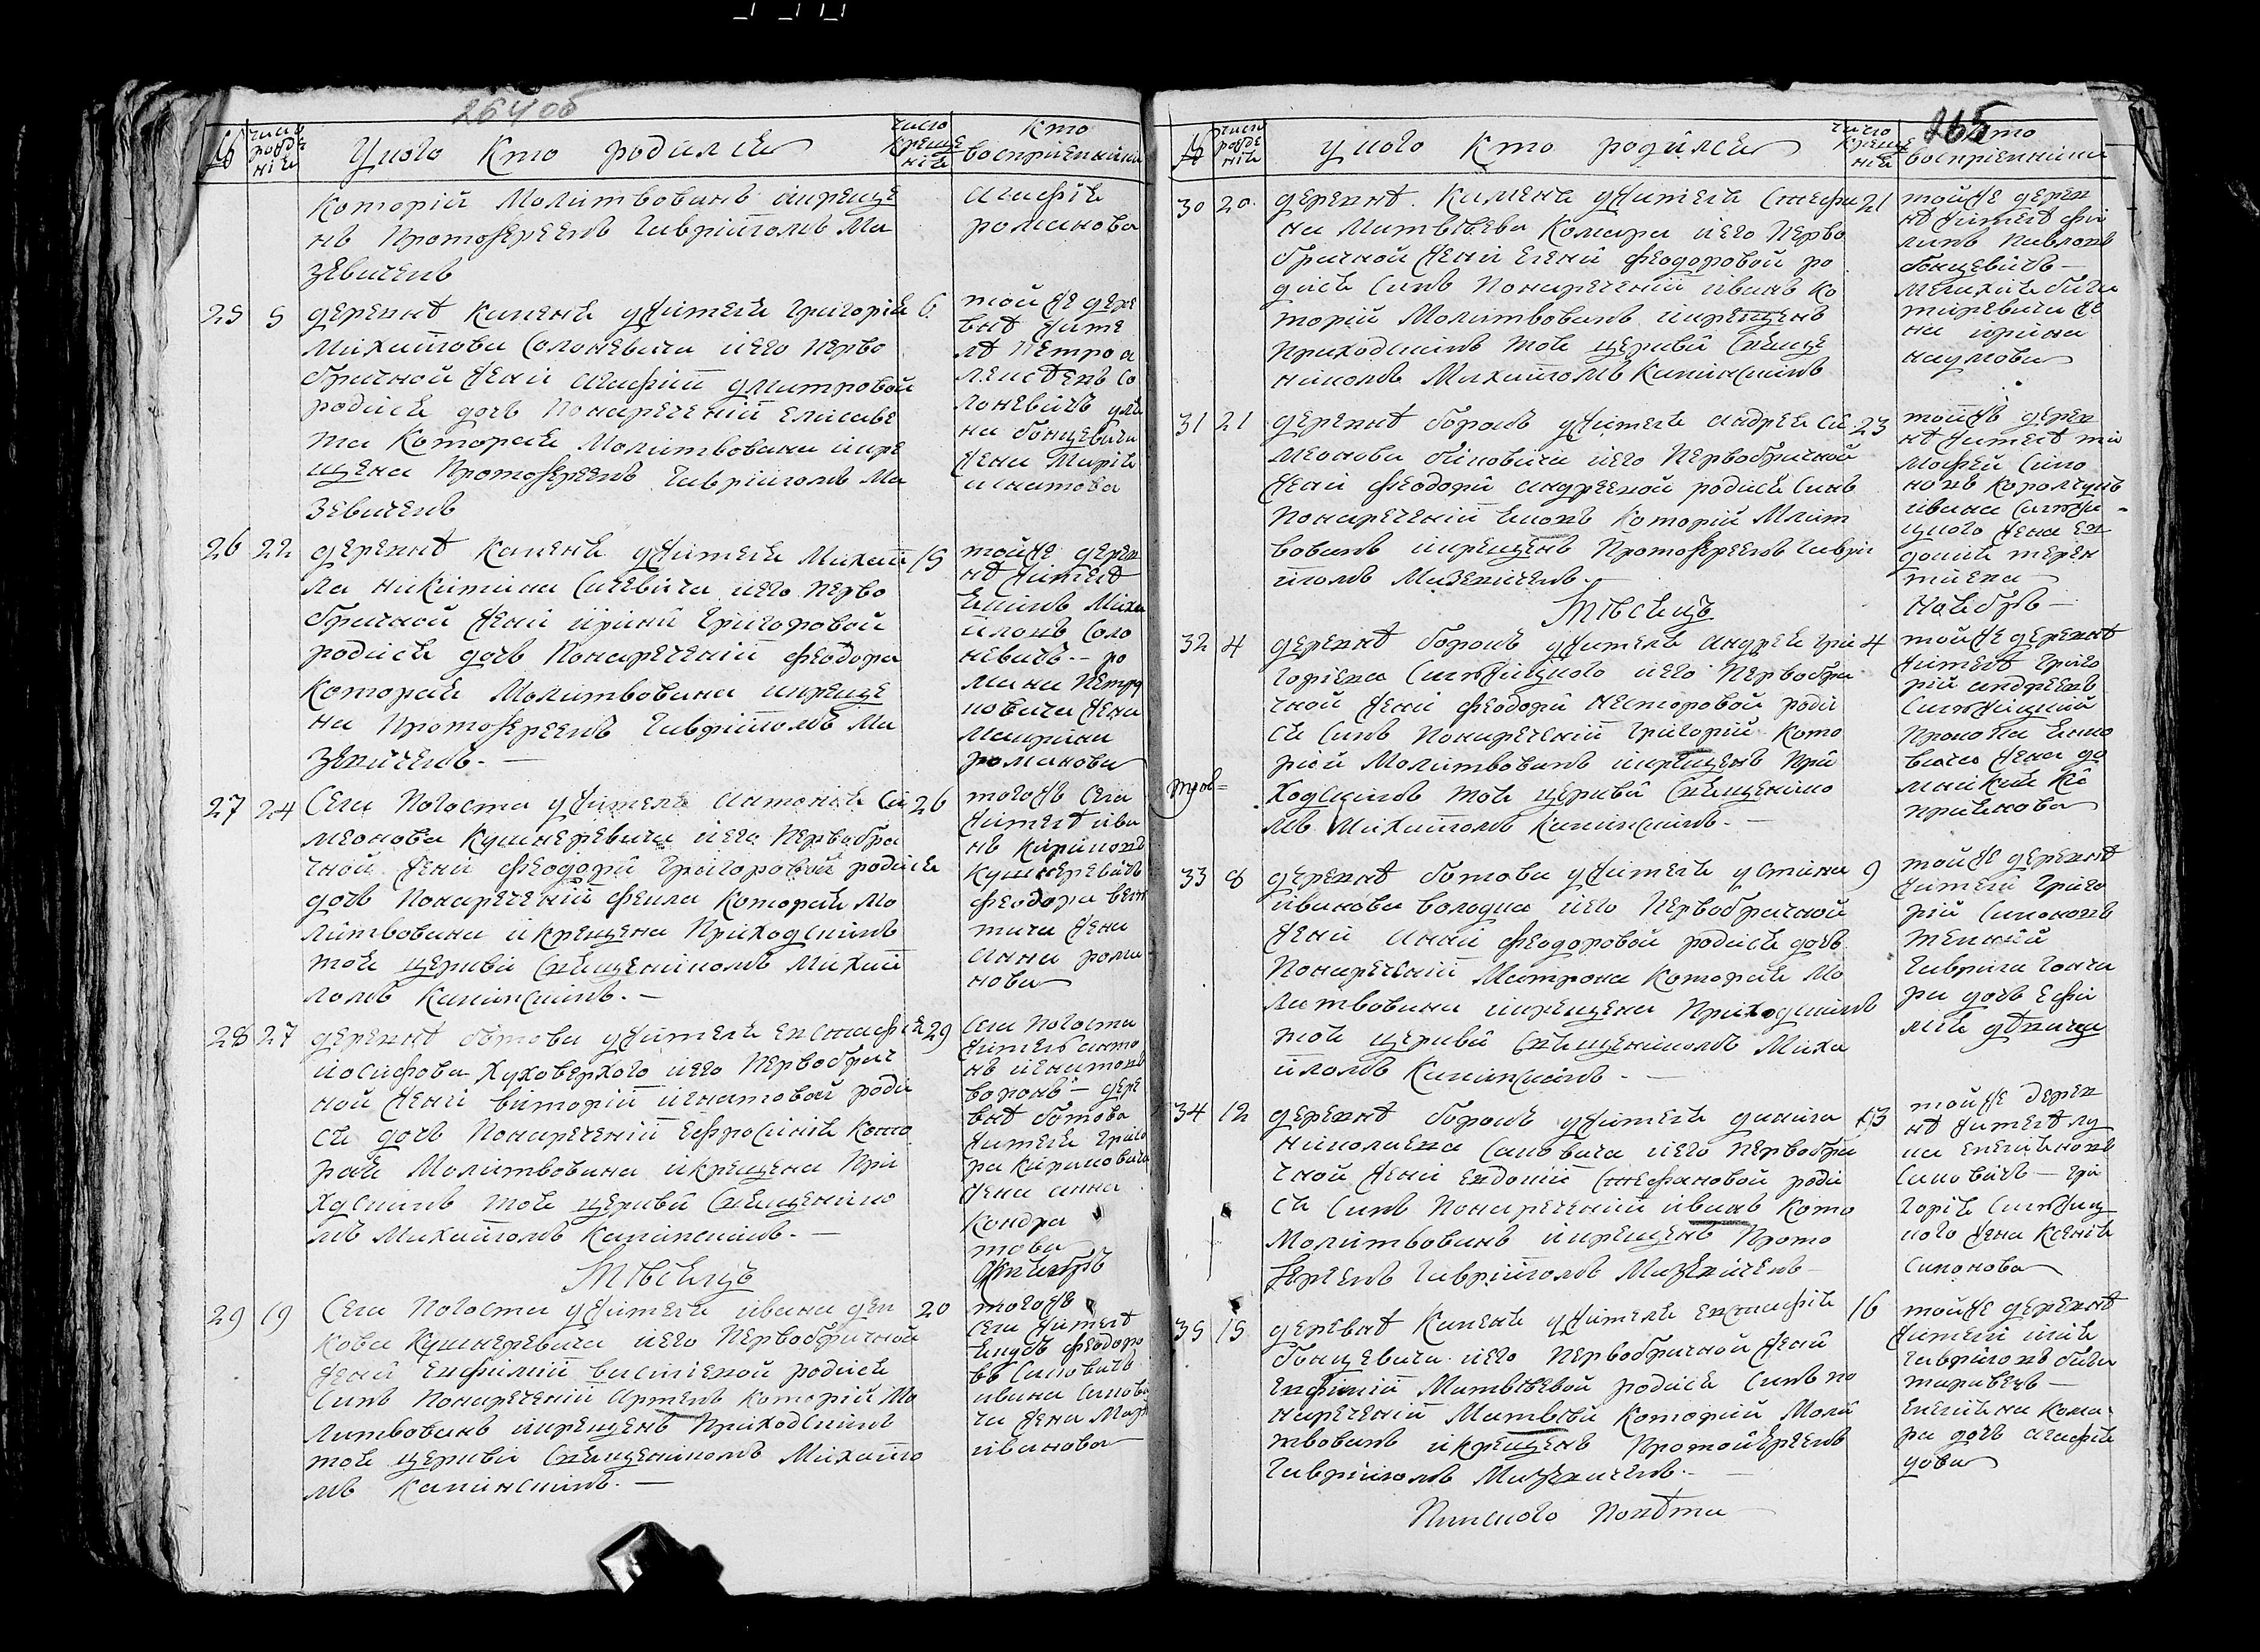 264 об
№
число
рожде
нія
У кого кто родился
число
креще
нія
кто
воспріемники
который молитвованъ и креще
нъ протоіереемъ Гавріиломъ Ма
зевичемъ
Агафія
романова
25 5 деревнѣ Каменя у жителя Григорія 6
Михайлова Солоневича и его перво
брачной жени Агафіи Дмитровой
родися дочь понареченій Елисаве
та которая молитвована и кре
щена протоіереемъ Гавріиломъ Ма
зевичемъ
той же дере
внѣ жите
лѣ Петро а
лексѣевъ Со
лоневичъ
на Бонцевича
жена Марія
игнатова
26 22 деревнѣ Каменя у жителя Михаи 15
ла никитина Сачевича и его перво
брачной жени ирини Григоровой
родися дочь понареченій Феодора
которая молитвована и креще
на протоіереемъ Гавріиломъ Ма
зевичемъ. —
той же дерев
нѣ жителѣ
Миха
йловъ Соло
невичъ — ро
мана Петру
новича жена
романова
27 24 Села Погоста у жителя Антонія Си 26
меонова Кушнеревича и его первобра
чной жени Феодори Григоровой родися
дочь понареченій Фекла которая мо
литвована и крещена приходскимъ
тоя церкви священикомъ Михаи
ломъ Капинскимъ. —
тогожъ села
жителѣ ива
нъ
Кушнеревичъ
феодора
жена
анна рома
нова
28 27 деревнѣ Ботова у жителя Евстафія 29
иосифова Куховерхого и его первобрач
ной жени Виторіи игнатовой роди
ся дочь понареченій Ефросинія кото
рая молитвована и крещена при
ходскимъ тоя церкви священико
мъ Михаиломъ Капинскимъ. —
села Погоста
житель анто
нъ игнатовъ
воронъ — дере
внѣ Ботова
жителя Григо
ра Кириловича
жена анна
Кондра
това
Мѣсяцъ
Октябръ
29 19 Села Погоста у жителя ивана
кова Кушнеревича и его первобрачной
жени Евфиміи василевой родися
синъ понареченій Артемъ которій мо
литвованъ и крещенъ приходскимъ
тоя церкви священикомъ Михаило
мъ Капинскимъ. —
20
тогоже
села жителѣ
Феодоро
въ Саковичъ
ивана Сакови
ча жена Мар
иванова
265
№
число
рожде
нія
у кого кто родился
число
креще
нія
кто
воспріемники
30 20 деревнѣ Каменя у жителя Стефа 21
на Матвѣева Комара и его перво
брачной жени Елени Феодоровой ро
дися синъ понареченій иванъ ко
торій молитвованъ и крещенъ
приходскимъ тоя церкви свяще
никомъ Михаиломъ Капинскимъ
той же дерев
нѣ жителѣ фи
липъ Павловъ
Бонцевичъ —
жe
на ирина
наумова
31 21 деревнѣ Боромъ у жителя Андрея Си 23
меонова Биковича и его первобрачной
жени Феодори Андреевой родися синъ
понареченій Яковъ которій млит
вованъ и крещенъ протоіереемъ Гаври
иломъ Мазевичемъ. —
тойжъ дерев
нѣ жителѣ ти
мофей Симо
новъ
ивана
жена Ев
докія терен
тиева
Мѣсяцъ
Ноябръ —
32 4 деревнѣ Боромъ у жителя Андрея Гри 4
горіева и его первобра
чной жени Феодори Несторовой роди
ся синъ понареченій Григорій кото
рій молитвованъ и крещенъ при
ходскимъ тоя церкви священико
мъ Михаиломъ Капинскимъ. —
той же деревнѣ
жителѣ Григо
рій андреевъ
Прокопа
вича жена до
микія Ки
приянова
33 8 деревнѣ Ботова у жителя устина 9
иванова володка и его первобрачной
жени Анни Феодоровой родися дочь
понареченій Матрона которая мо
литвована и крещена приходскимъ
тоя церкви священикомъ Миха
иломъ Капинскимъ. —
той же деревнѣ
жители Григо
рій Симоновъ
Гаврила Гонча
ра дочь Ефи
мія дѣвица
34 12 деревнѣ Боромъ у жителя данила 13
николаева Саковича и его первобра
чной жени Евдокіи Стефановой роди
ся синъ понареченій иванъ кото
молитвованъ и крещенъ прото
іереемъ Гавріиломъ Мазевичемъ —
той же дерев
нѣ жителѣ лу
ка
Саковичъ — Гри
горія
жена Ксенія
Симонова
35 15 деревнѣ Каменя у жителя Евстафія 16
Бонцевича и его первобрачной жени
Евфиміи Матвѣевой родися синъ по
нареченій Матвѣй которій моли
твованъ и крещенъ протоіереемъ
Гавріиломъ Мазевичемъ. —
той же деревнѣ
жители илія
Гавриловъ
Кома
ра дочь агафія
Пинского повѣта